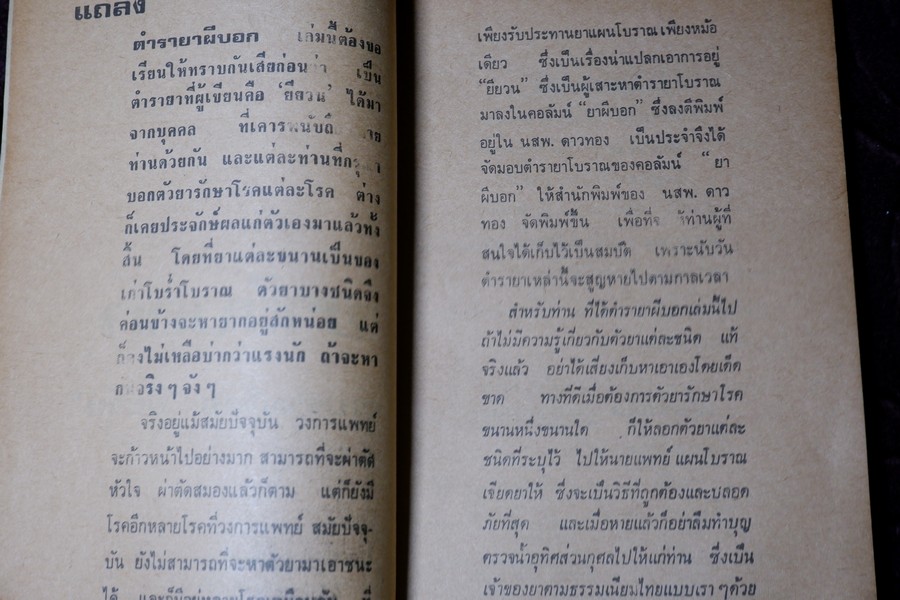 แถลง
ตำรายาผีบอก เล่มนี้ต้องขอ
เรียนให้ทราบกันเสียก่อนว่า เป็น
ตำรายาที่ผู้เขียนคือ ‘ยียวน’ ได้มา
จากบุคคล ที่เคารพนับถือ
ท่านด้วยกัน และแต่ละท่านที่กรุณา
บอกตัวยารักษาโรคแต่ละโรค ต่าง
ก็เคยประจักษ์ผลแก่ตัวเองมาแล้วทั้ง
สิ้น โดยที่ยาแต่ละขนานเป็นของ
เก่าโบร่ำโบราณ ตัวยาบางชนิดจึง
ค่อนข้างจะหายากอยู่สักหน่อย แต่
ก็คงไม่เหลือบ่ากว่าแรงนัก ถ้าจะหา
กันจริง ๆ จัง ๆ
จริงอยู่แม้สมัยปัจจุบัน วงการแพทย์
จะก้าวหน้าไปอย่างมาก สามารถที่จะผ่าตัด
หัวใจ ผ่าตัดสมองแล้วก็ตาม แต่ก็ยังมี
โรคอีกหลายโรคที่วงการแพทย์ สมัยปัจจุ-
บัน ยังไม่สามารถที่จะหาตัวยามาเอาชนะ
ได้ และก็มีอยู่หลายโรค ที่
เพียงรับประทานยาแผนโบราณ เพียงหม้อ
เดียว ซึ่งเป็นเรื่องน่าแปลกเอาการอยู่
“ยียวน” ซึ่งเป็นผู้เสาะหาตำรายาโบราณ
มาลงในคอลัมน์ “ยาผีบอก” ซึ่งลงตีพิมพ์
อยู่ใน นสพ. ดาวทอง เป็นประจำจึงได้
จัดมอบตำรายาโบราณของคอลัมน์ “ยา
ผีบอก” ให้สำนักพิมพ์ของ นสพ. ดาว
ทอง จัดพิมพ์ขึ้น เพื่อที่จะ ท่านผู้ที่
สนใจได้เก็บไว้เป็นสมบัติ เพราะนับวัน
ตำรายาเหล่านี้จะสูญหายไปตามกาลเวลา
สำหรับท่าน ที่ได้ตำรายาผีบอกเล่มนี้ไป
ถ้าไม่มีความรู้เกี่ยวกับตัวยาแต่ละชนิด แท้
จริงแล้ว อย่าได้เสี่ยงเก็บหาเอาเองโดยเด็ด
ขาด ทางที่ดีเมื่อต้องการตัวยารักษาโรค
ขนานหนึ่งขนานใด ก็ให้ลอกตัวยาแต่ละ
ชนิดที่ระบุไว้ ไปให้นายแพทย์ แผนโบราณ
เจียดยาให้ ซึ่งจะเป็นวิธีที่ถูกต้องและปลอด
ภัยที่สุด และเมื่อหายแล้วก็อย่าลืมทำบุญ
ตรวจน้ำอุทิศส่วนกุศลไปให้แก่ท่าน ซึ่งเป็น
เจ้าของยาตามธรรมเนียมไทยแบบเรา ๆ ด้วย